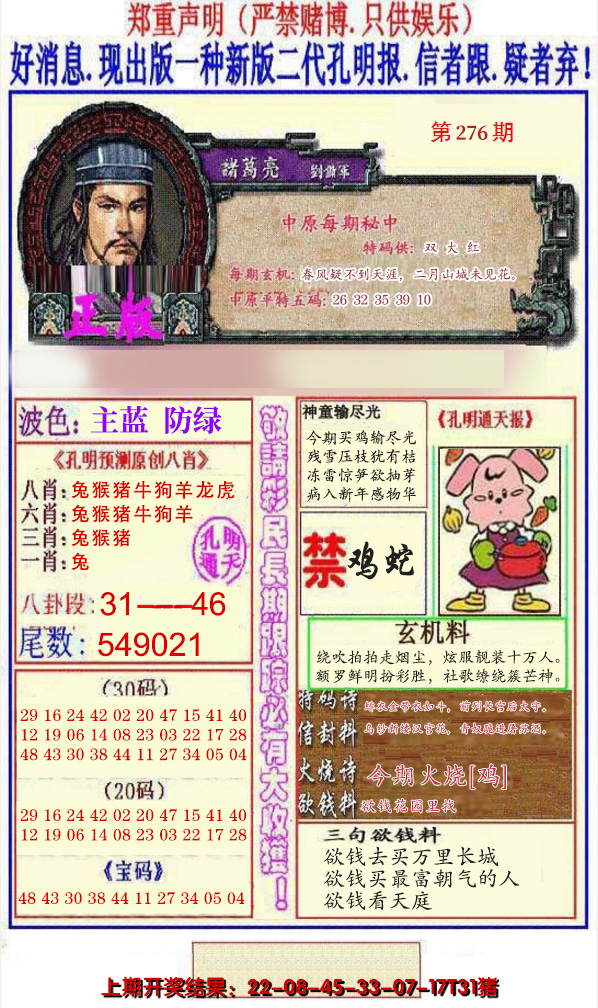 郑重声明（严禁赌博.只供娱乐）
好消息.现出版一种新版二代孔明报.信者跟.疑者弃！
第276期
諸葛亮 劉備軍
中原每期秘中
特码供: 双大红
每期玄机: 春风疑不到天涯，二月山城未见花。
中原平特五码: 26 32 35 39 10
正版
波色：主蓝 防绿
《孔明预测原创八肖》
八肖：兔猴猪牛狗羊龙虎
六肖：兔猴猪牛狗羊
三肖：兔猴猪
一肖：兔
孔明
通天
八卦段：31——46
尾数：549021
（30码）
29 16 24 42 02 20 47 15 41 40
12 19 06 14 08 23 03 22 17 28
48 43 30 38 44 11 27 34 05 04
（20码）
29 16 24 42 02 20 47 15 41 40
12 19 06 14 08 23 03 22 17 28
《宝码》
48 43 30 38 44 11 27 34 05 04
敬請彩民長期跟踪必有大收獲！
神童输尽光
今期买鸡输尽光
残雪压枝犹有桔
冻雷惊笋欲抽芽
病入新年感物华
《孔明通天报》
禁 鸡蛇
玄机料
绕吹拍拍走烟尘，炫服靓装十万人。
额罗鲜明扮彩胜，社歌缭绕簇芒神。
特码诗
信封料
火烧诗 今期火烧[鸡]
欲钱料 欲钱花园里找
三句欲钱料
欲钱去买万里长城
欲钱买最富朝气的人
欲钱看天庭
上期开奖结果：22-08-45-33-07-17T31猪